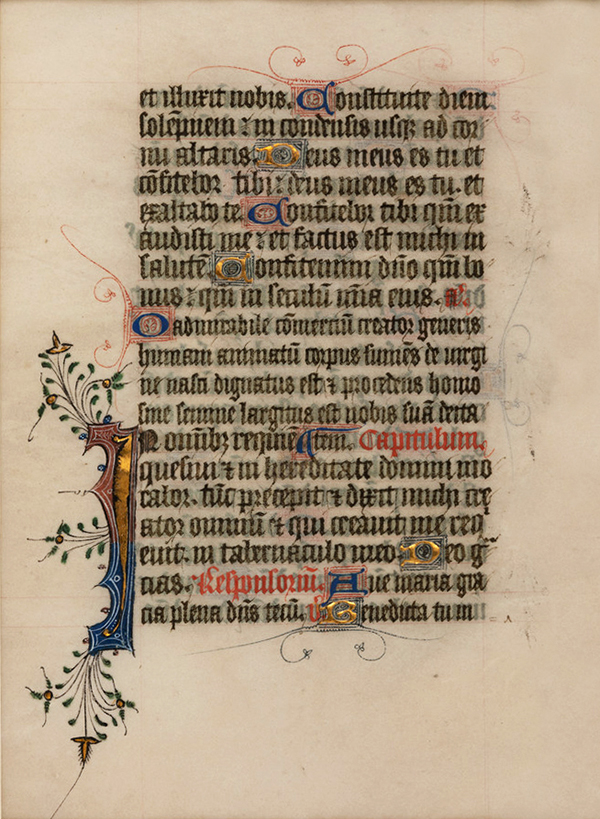 et illuxit nobis. Constituite diem
solēpnem ⁊ in condensis usqȝ ad cor
nu altaris. Deus meus es tu et
cōfitebor tibi ⁊ deus meus es tu. et
exaltabo te. Confitebor tibi qm̄ ex
audisti me ⁊ et factus est michi in
salutē. Confitemini dn̄o qm̄ bo
nus ⁊ qm̄ in seculū mīa eius. a
O admirabile cōmerciū creator generis
humani animatū corpus sumēs de virgi
ne nasci dignatus est ⁊ procedens homo
sine semine largitus est nobis suā deita
In omībȝ requiē tem. Capitulum.
quesivi ⁊ in hereditate domini mo
rabor. tūc precepit ⁊ dixit michi cre
ator omniū ⁊ qui creavit me req
evit in tabernaculo meo. Deo g
cias. Responsoriū. Ave maria gra
cia plena dn̄s tecū. v̄ Benedicta tu in